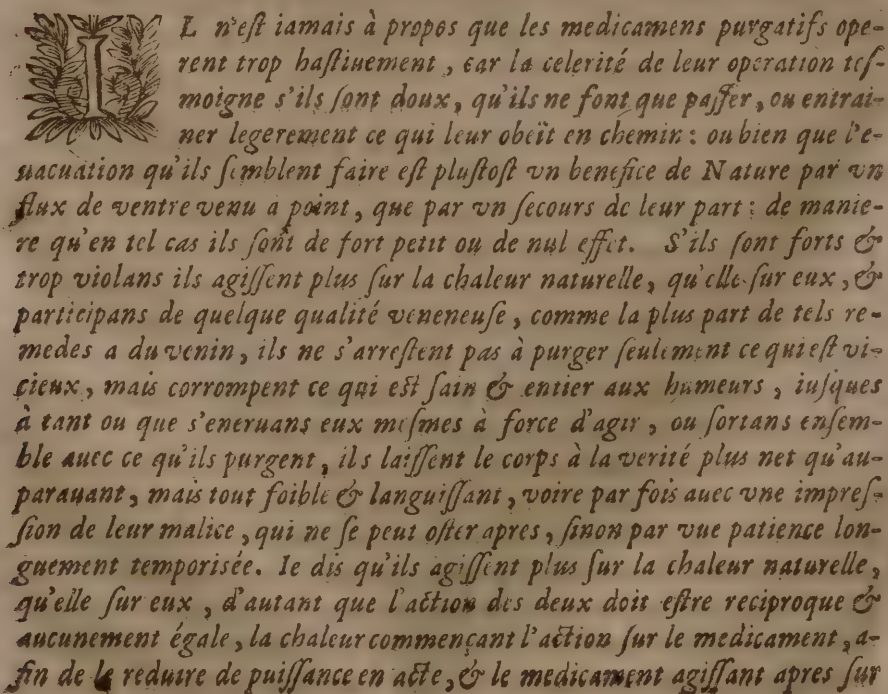 IL n'eſt iamais à propos que les medicamens purgatifs ope-
rent trop haſtiuement, car la celerité de leur operation teſ-
moigne s'ils ſont doux, qu'ils ne font que paſſer, ou entrai-
ner legerement ce qui leur obeït en chemin: ou bien que l'e-
uacuation qu'ils ſemblent faire eſt pluſtoſt vn benefice de Nature par vn
flux de ventre venu a point, que par vn ſecours de leur part: de manie-
re qu'en tel cas ils ſont de fort petit ou de nul effet. S'ils ſont forts &
trop violans ils agiſſent plus ſur la chaleur naturelle, qu'elle ſur eux, &
participans de quelque qualité veneneuſe, comme la plus part de tels re-
medes a du venin, ils ne s'arreſtent pas à purger ſeulement ce qui eſt vi-
cieux, mais corrompent ce qui eſt ſain & entier aux humeurs, iuſques
à tant ou que s'eneruans eux meſmes à force d'agir, ou ſortans enſem-
ble auec ce qu'ils purgent, ils laiſſent le corps à la verité plus net qu'au-
parauant, mais tout foible & languiſſant, voire par fois auec vne impreſ-
ſion de leur malice, qui ne ſe peut oſter apres, ſinon par vue patience lon-
guement temporisée. Ie dis qu'ils agiſſent plus ſur la chaleur naturelle,
qu'elle ſur eux, d'autant que l'action des deux doit eſtre reciproque &
aucunement égale, la chaleur commençant l'action ſur le medicament, a-
fin de le reduire de puiſſance en acte, & le medicament agiſſant apres ſur